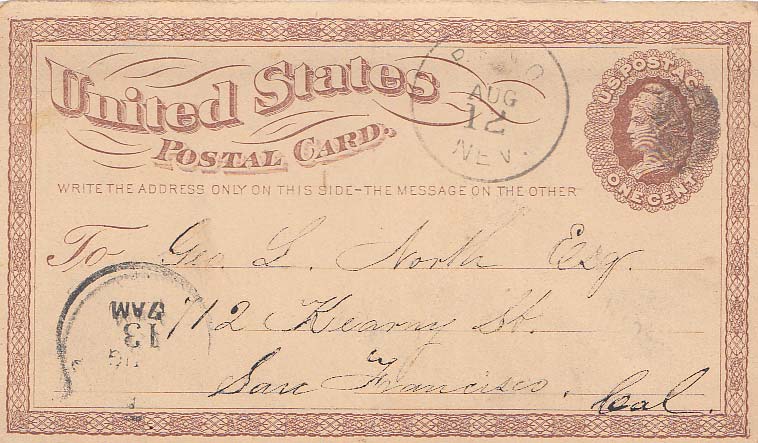 United States
POSTAL CARD.
U.S. POSTAGE
ONE CENT
AUG
12
NEV.
WRITE THE ADDRESS ONLY ON THIS SIDE-THE MESSAGE ON THE OTHER
To Geo. L. North Esq.
712 Kearny St.
San Francisco. Cal.
13
7AM